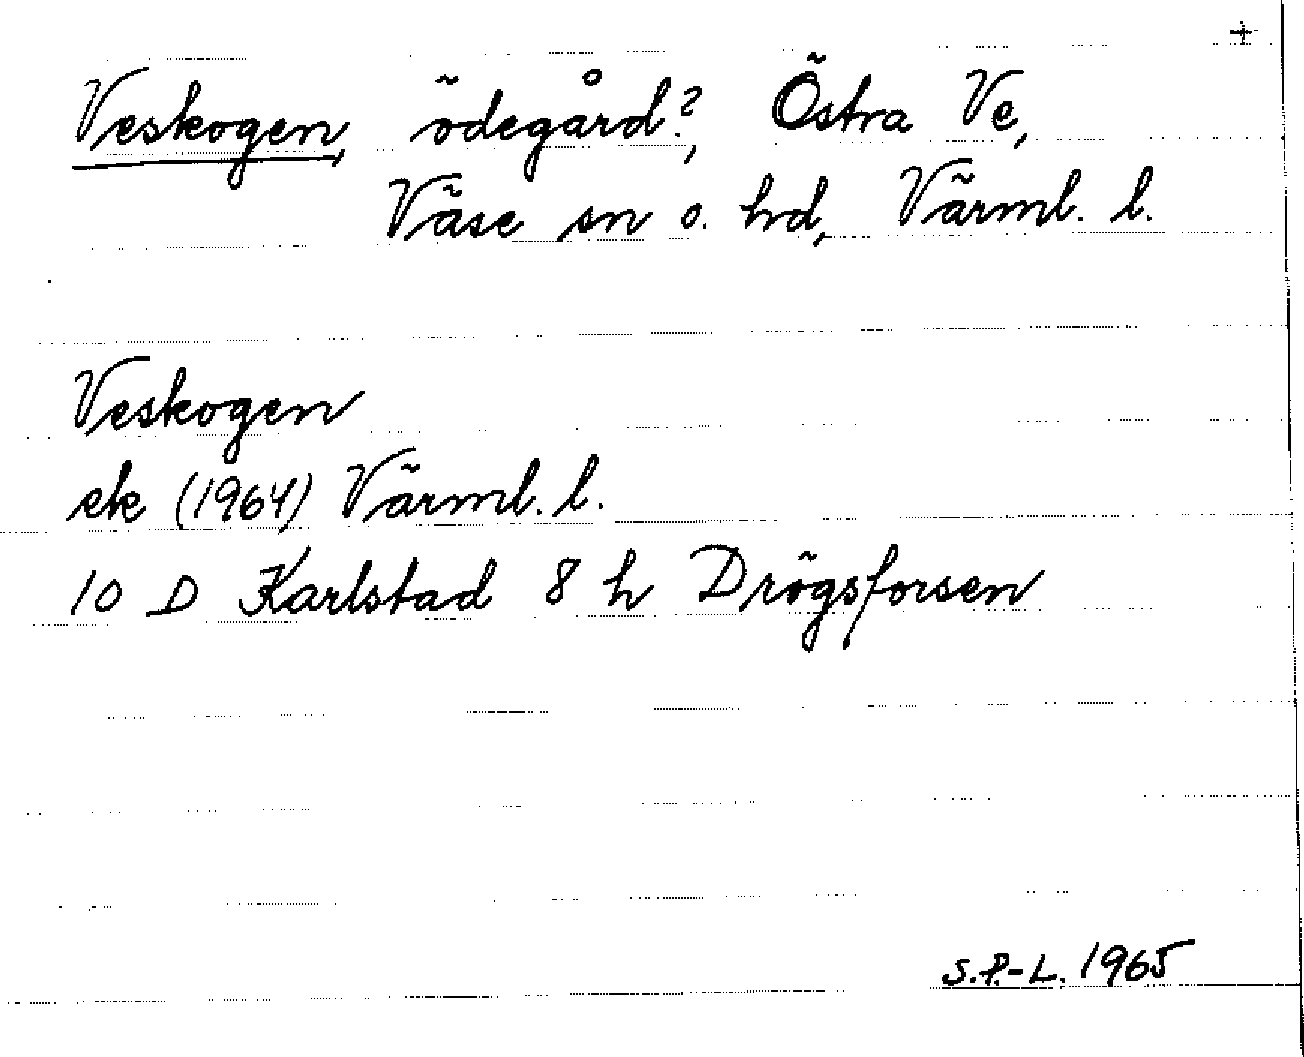 +
Veskogen, ödegård?, Östra Ve,
Väse sn o. hd, Värml. l.
Veskogen
ek (1964) Värml. l.
10 D Karlstad 8 h Drögsforsen
S.P.-L. 1965